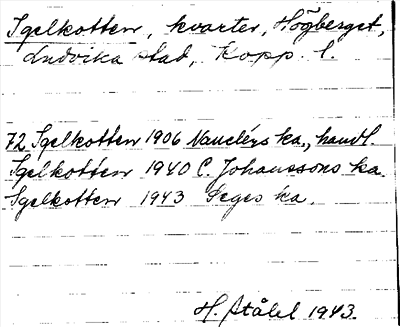 Igelkotten, kvarter, Högberget,
Ludvika stad, Kopp. l.
72 Igelkotten 1906 Nauclérs ka., handl.
Igelkotten 1940 C. Johanssons ka.
Igelkotten 1943 Seges ka.
H. Ståhl 1943.